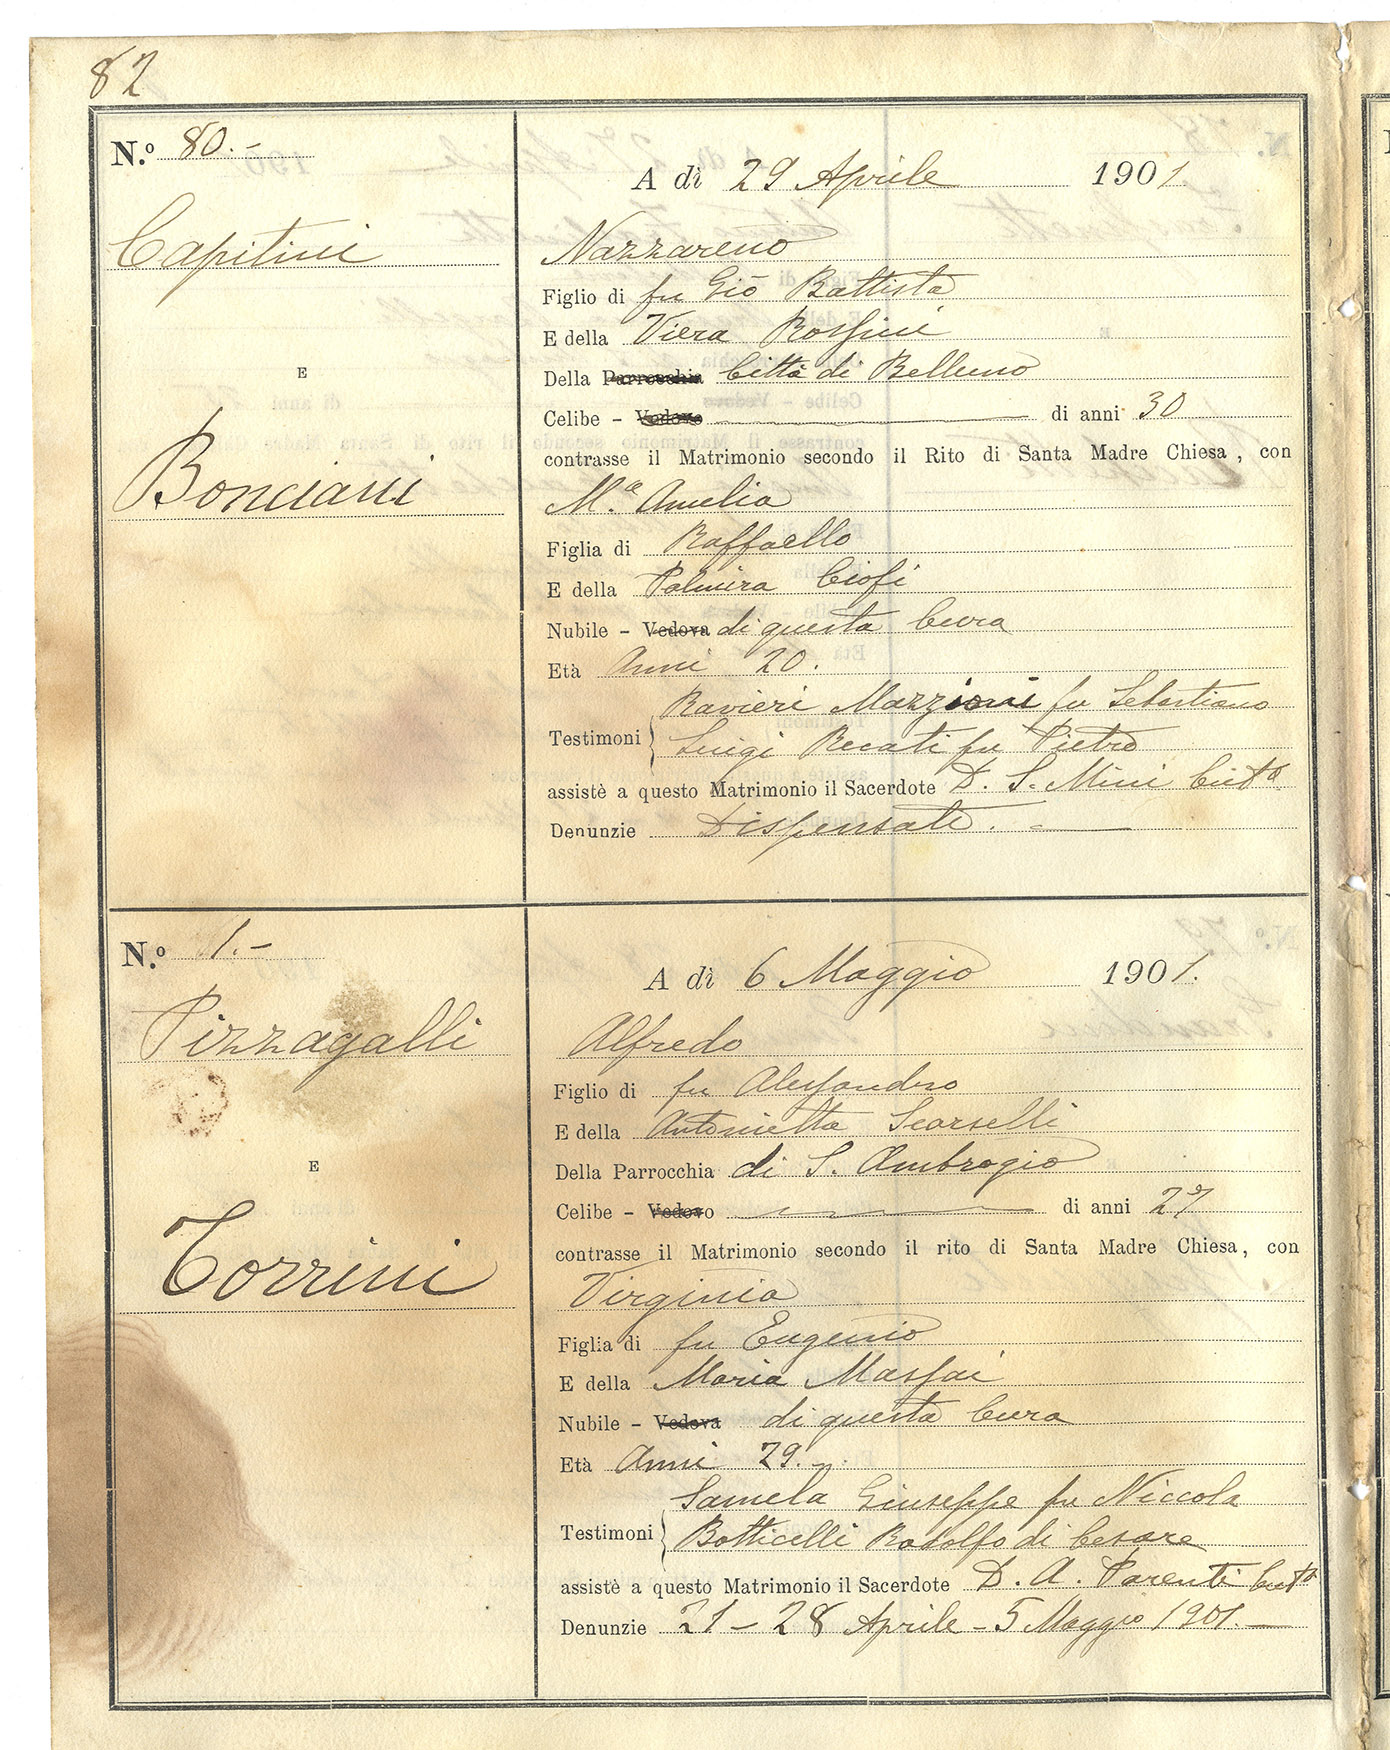 82
N.º 80.-
Capitini
E
Bonciani
A dì 29 Aprile 1901
Nazzareno
Figlio di fu Gio Battista
E della Viera Rossini
Della Parrocchia Città di Belluno
Celibe - Vedovo di anni 30
contrasse il Matrimonio secondo il Rito di Santa Madre Chiesa, con
M.a Amelia
Figlia di Raffaello
E della Palmira Ciofi
Nubile - Vedova di questa Cura
Età Anni 20.
Ravieri Mazzioni fu Sebastiano
Testimoni
Luigi Recati fu Pietro
assistè a questo Matrimonio il Sacerdote D. S. Mini
Denunzie Dispensati. -
N.º 1.-
Pizzagalli
E
Torrini
A dì 6 Maggio 1901.
Alfredo
Figlio di fu Alessandro
E della Antonietta Scarselli
Della Parrocchia di S. Ambrogio
Celibe - Vedovo di anni 27
contrasse il Matrimonio secondo il rito di Santa Madre Chiesa, con
Virginia
Figlia di fu Eugenio
E della Maria Massai
Nubile - Vedova di questa Cura
Età Anni 29.-
Samela Giuseppe fu Niccola
Testimoni
Botticelli Rodolfo di Cesare
assistè a questo Matrimonio il Sacerdote D. A. Parenti
Denunzie 21 - 28 Aprile - 5 Maggio 1901.-